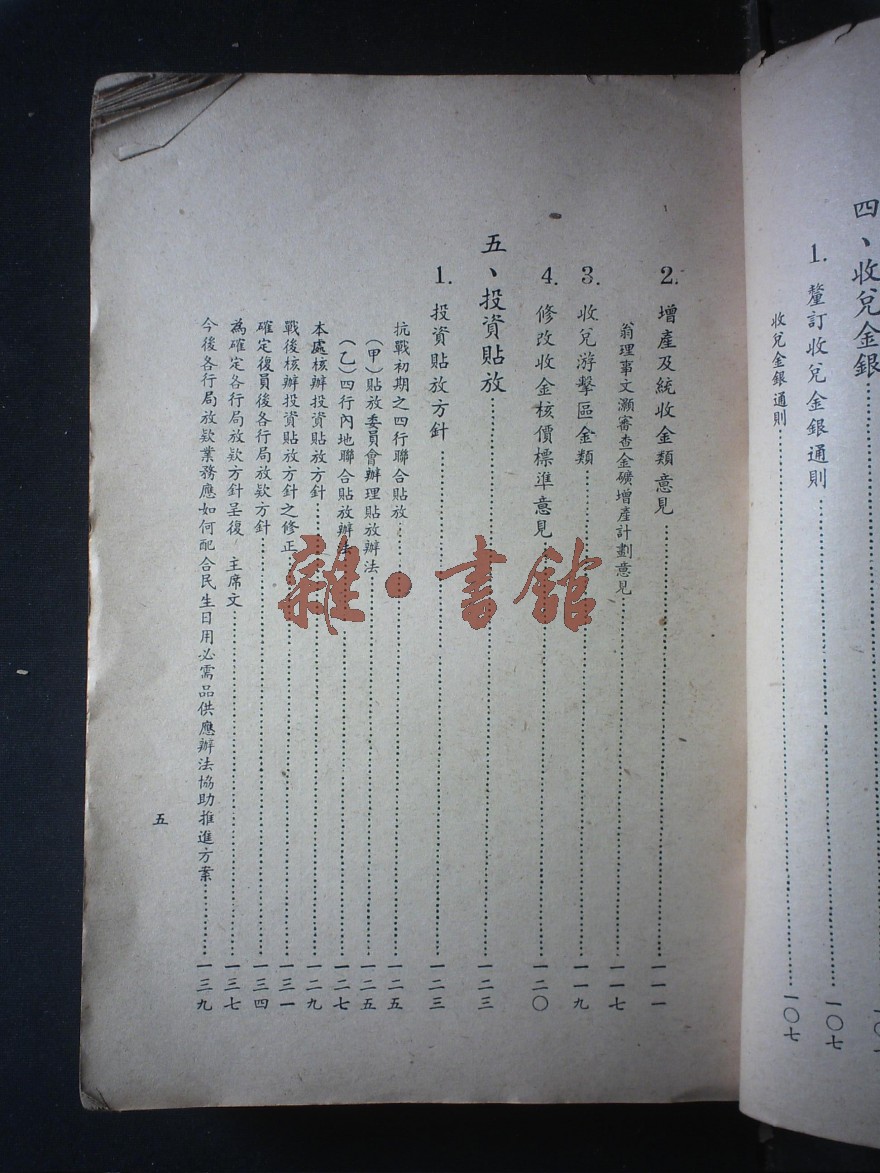 四、收兌金銀
1. 釐訂收兌金銀通則……一〇七
收兌金銀通則……一〇七
2. 增產及統收金類意見……一一一
翁理事文灝審查金礦增產計劃意見……一一七
3. 收兌游擊區金類……一一九
4. 修改收金核價標準意見……一二〇
五、投資貼放……一二三
1. 投資貼放方針……一二三
抗戰初期之四行聯合貼放……一二五
（甲）貼放委員會辦理貼放辦法……一二五
（乙）四行內地聯合貼放辦法……一二七
本處核辦投資貼放方針……一二九
戰後核辦投資貼放方針之修正……一三一
確定復員後各行局放款方針……一三四
為確定各行局放款方針呈復　主席文……一三七
今後各行局放款業務應如何配合民生日用必需品供應辦法協助推進方案……一三九
五
雜·書館